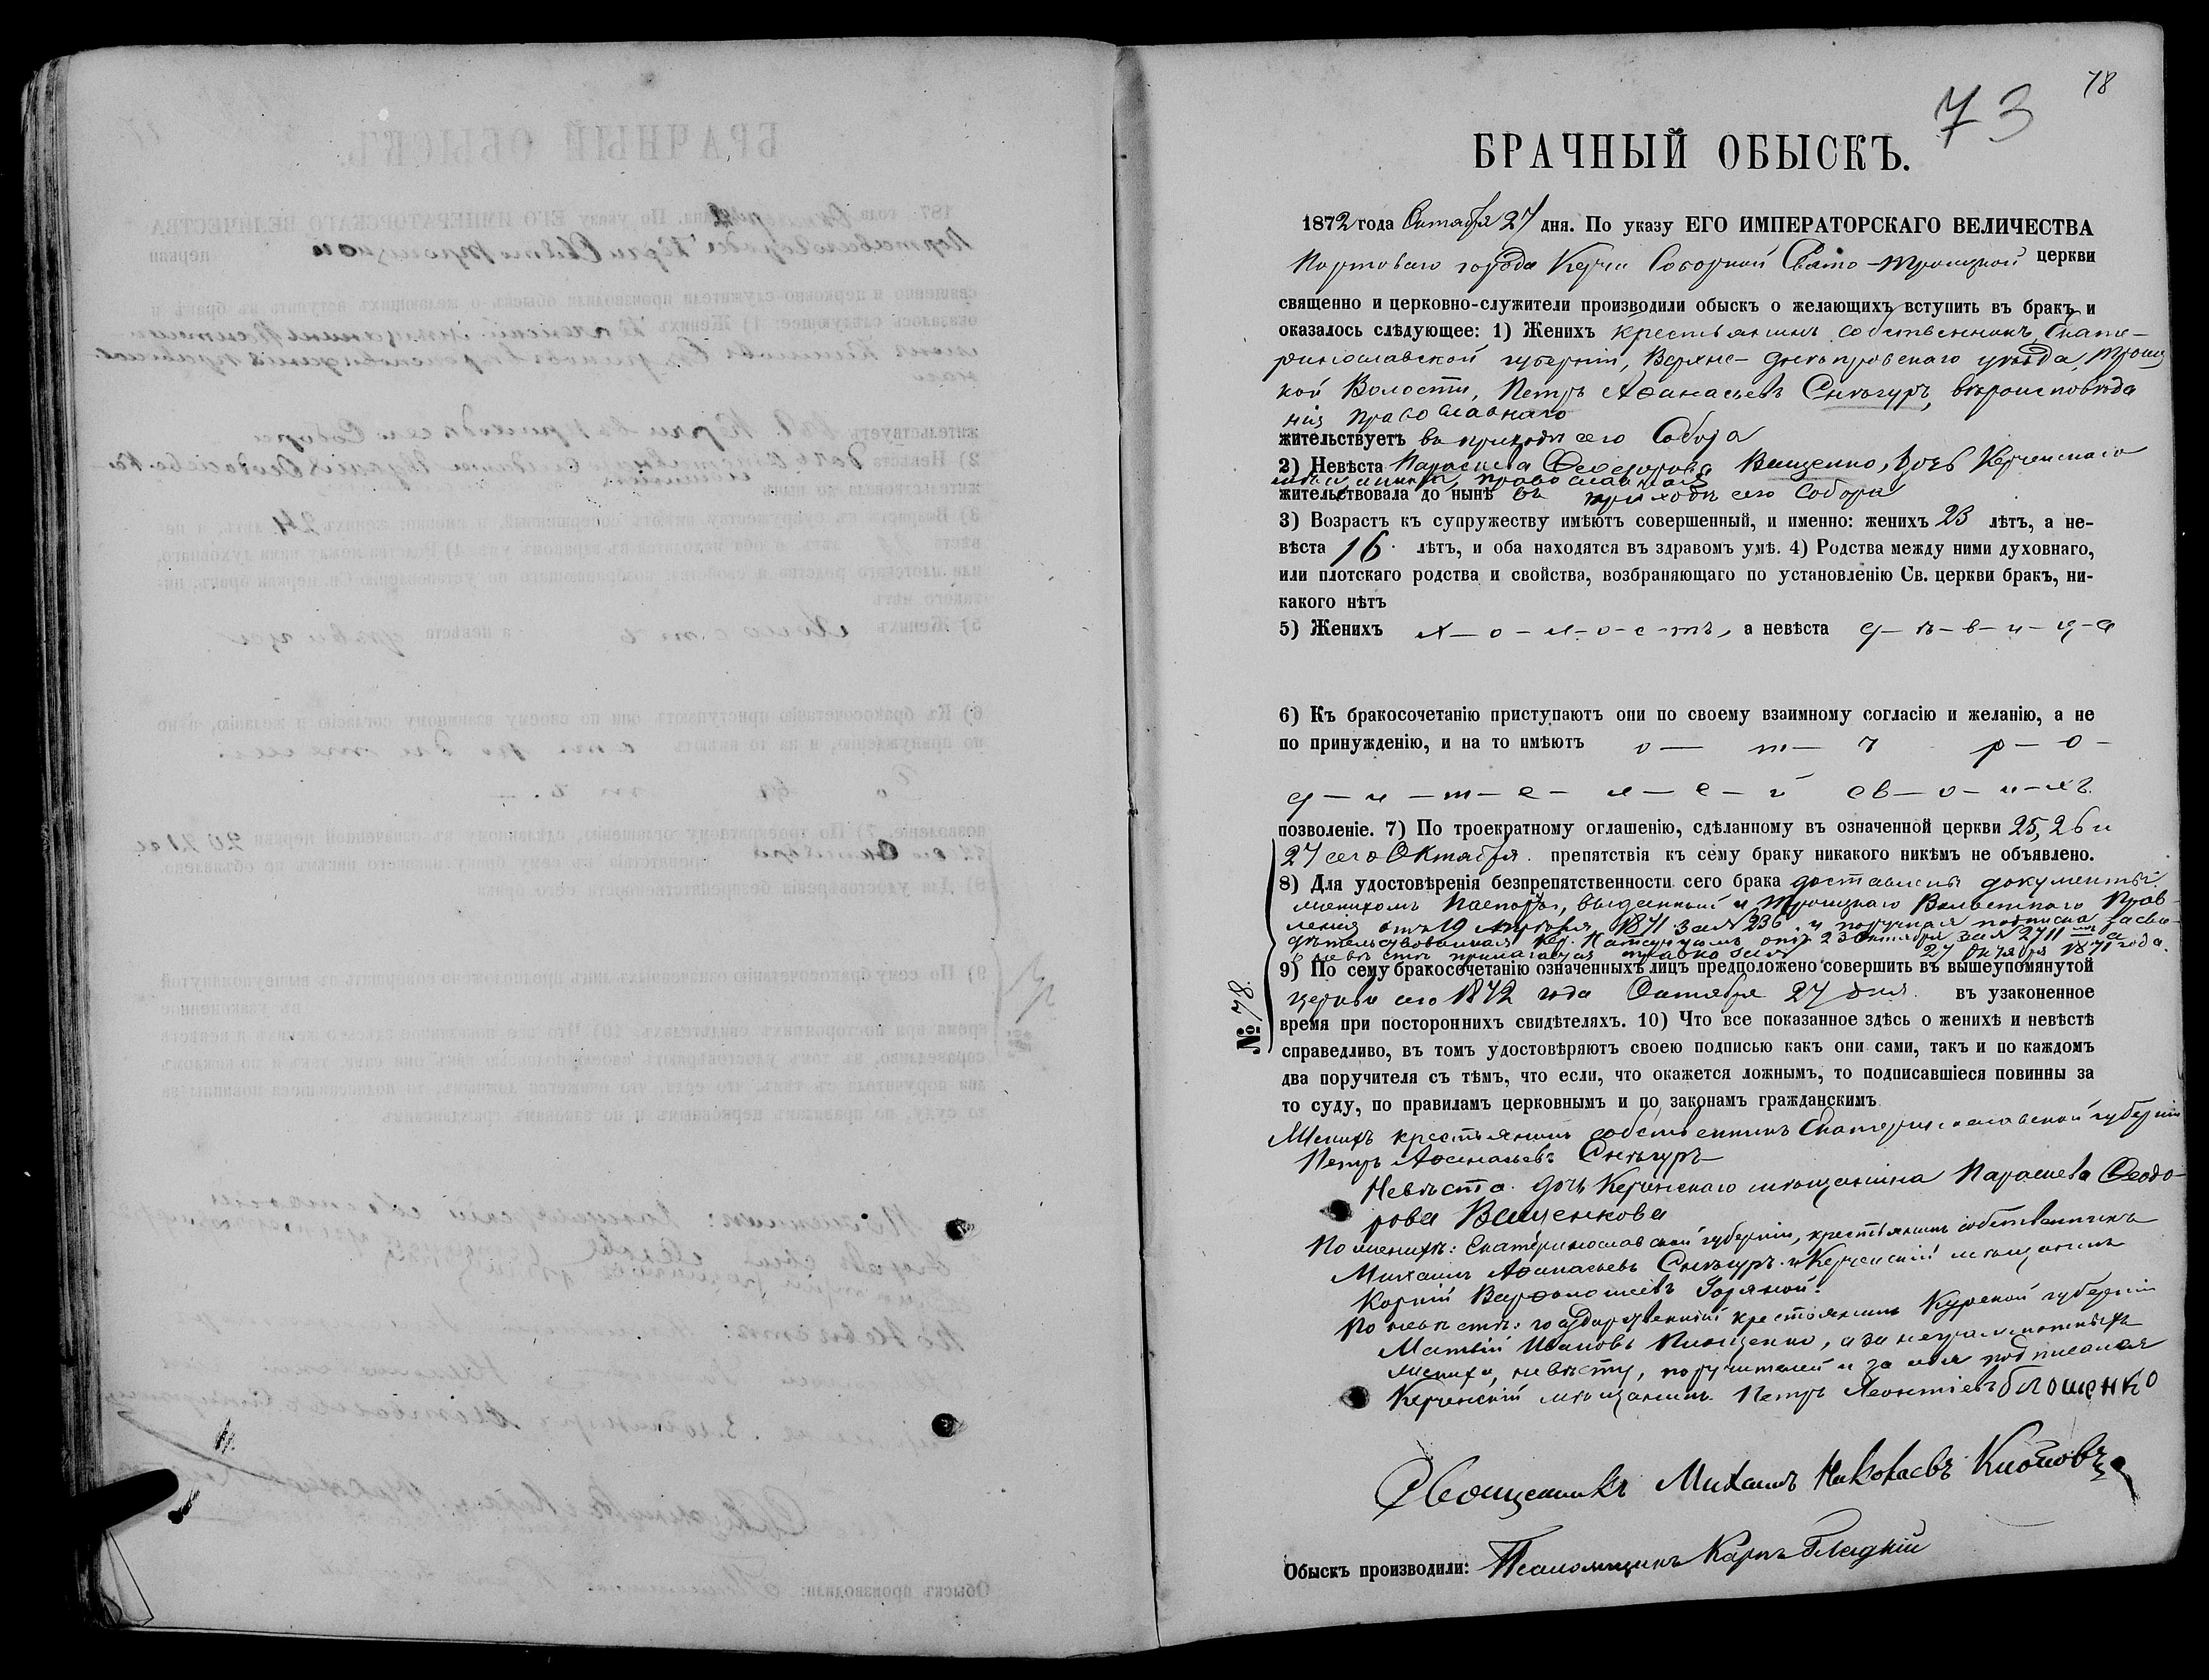 78
73
БРАЧНЫЙ ОБЫСКЪ.
1872 года Октября 27 дня. По указу ЕГО ИМПЕРАТОРСКАГО ВЕЛИЧЕСТВА
Портоваго города Керчи Соборной Свято-Троицкой церкви
священно и церковно-служители производили обыскъ о желающихъ вступить въ бракъ и
оказалось слѣдующее: 1) Женихъ крестьянинъ собственникъ Екате-
ринославской губерніи, Верхне-Днѣпровскаго уѣзда, Троиц
кой Волости, Петръ Аѳанасьевъ Снѣгуръ, вѣроисповѣда
нія православнаго
жительствуетъ въ приходѣ сего Собора
2) Невѣста Параскева Ѳеодорова Ващенко, дочь Керченскаго
мѣщанина, православная
жительствовала до нынѣ въ приходѣ сего Собора
3) Возрастъ къ супружеству имѣютъ совершенный, и именно: женихъ 23 лѣтъ, а не-
вѣста 16 лѣтъ, и оба находятся въ здравомъ умѣ. 4) Родства между ними духовнаго,
или плотскаго родства и свойства, возбраняющаго по установленію Св. церкви бракъ, ни-
какого нѣтъ
5) Женихъ х-о-л-о-с-тъ, а невѣста д-ѣ-в-и-ц-а
6) Къ бракосочетанію приступаютъ они по своему взаимному согласію и желанію, а не
по принужденію, и на то имѣютъ о- т- ъ р-о-
д-и-т-е-л-е-й св-о-и-хъ
позволеніе. 7) По троекратному оглашенію, сдѣланному въ означенной церкви 25, 26 и
27 сего Октября. препятствія къ сему браку никакого никѣмъ не объявлено.
8) Для удостовѣренія безпрепятственности сего брака доставлены документы:
женихомъ Паспортъ, выданный Троицкаго Волостнаго Прав-
ленія отъ 19 1871 за № 236 и поручная подписка засви-
дѣтельствованная отъ 23 Октября за № 2711
27 Октября 1871 года.
9) По сему бракосочетанію означенныхъ лицъ предположено совершить въ вышеупомянутой
церкви сего 1872 года Октября 27 дня. въ узаконенное
№ 78.
время при постороннихъ свидѣтеляхъ. 10) Что все показанное здѣсь о женихѣ и невѣстѣ
справедливо, въ томъ удостовѣряютъ своею подписью какъ они сами, такъ и по каждомъ
два поручителя съ тѣмъ, что если, что окажется ложнымъ, то подписавшіеся повинны за
то суду, по правиламъ церковнымъ и по законамъ гражданскимъ
Женихъ крестьянинъ собственникъ Екатеринославской губерніи
Петръ Аѳанасьевъ Снѣгуръ
Невѣста дочь Керченскаго мѣщанина Параскева Ѳеодо-
рова Ващенкова
По женихѣ: Екатеринославской губерніи, крестьянинъ собственникъ
Михаилъ Аѳанасьевъ Снѣгуръ и Керченскій мѣщанинъ
Корній Варѳоломеевъ
По невѣстѣ: государственный крестьянинъ Курской губерніи
Матвій Ивановъ, а за неграмотныхъ
жениха, невѣсту, поручителей и за себя подписался
Керченскій мѣщанинъ Петръ Леонтіевъ Блошенко
Священникъ Михаилъ Николаевъ
Обыскъ производили: Псаломщикъ Карпъ Гладкій